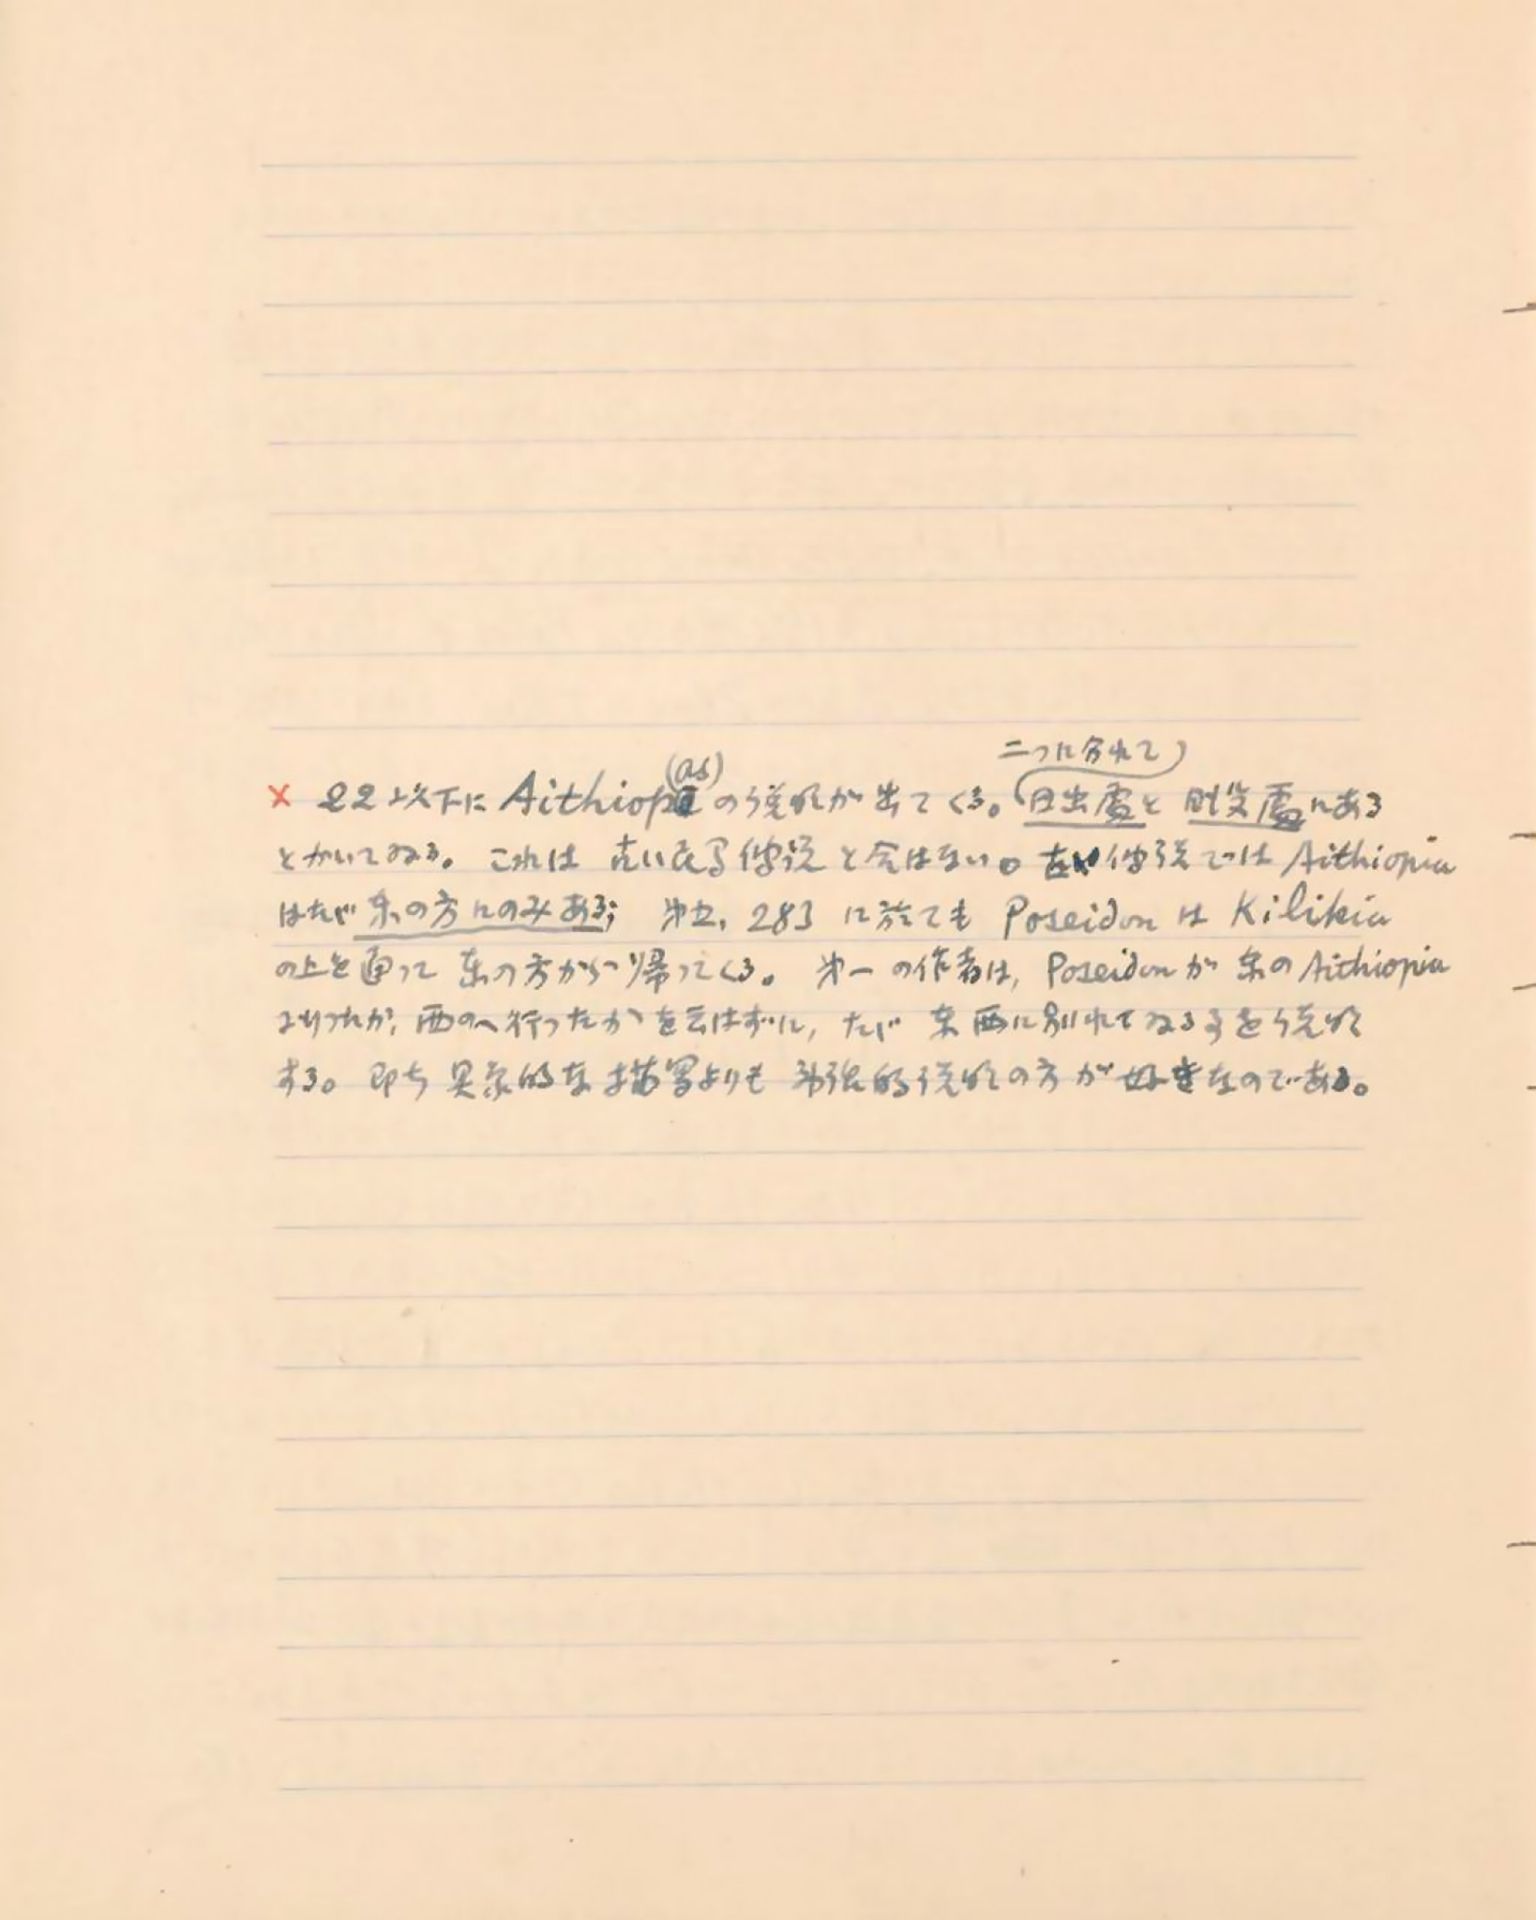 二つに分れて
(as)
× 22以下に Aithiopia の説明が出てくる。日出處と日没處にある
とかいてゐる。これは古い伝説と会はない。古い伝説では Aithiopia
はたゞ東の方にのみある; 第五, 283 に於ても Poseidon は Kilikia
の上を通って東の方から帰ってくる。第一の作者は, Poseidon が東の Aithiopia
西のへ行ったかを云はずに, たゞ東西に別れてゐる事を説明
する。即ち具象的な描写よりも 的説明の方が好きなのである。